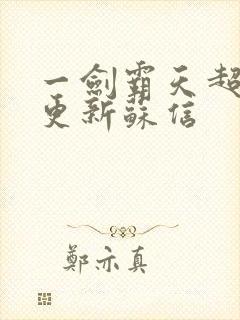 一劍霸天超
更新蘇信
鄭亦真